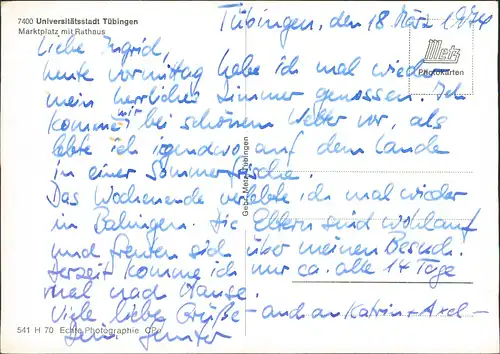 7400 Universitätsstadt Tübingen
Marktplatz mit Rathaus
Tübingen, den 18. März 1974
Metz
Photokarten
Liebe Ingrid,
heute vormittag habe ich mal wieder
mein herrliches Zimmer genossen. Ich
komme mir bei schönem Wetter vor, als
lebte ich irgendwo auf dem Lande
in einer Sommerfrische.
Das Wochenende verlebte ich mal wieder
in Balingen. Die Eltern sind wohlauf
und freuen sich über meinen Besuch.
Derzeit komme ich nur ca. alle 14 Tage
mal nach Hause.
Viele liebe Grüße - auch an Katrin + Axel -
Dein
Gebr. Metz, Tübingen
541 H 70 Echte Photographie